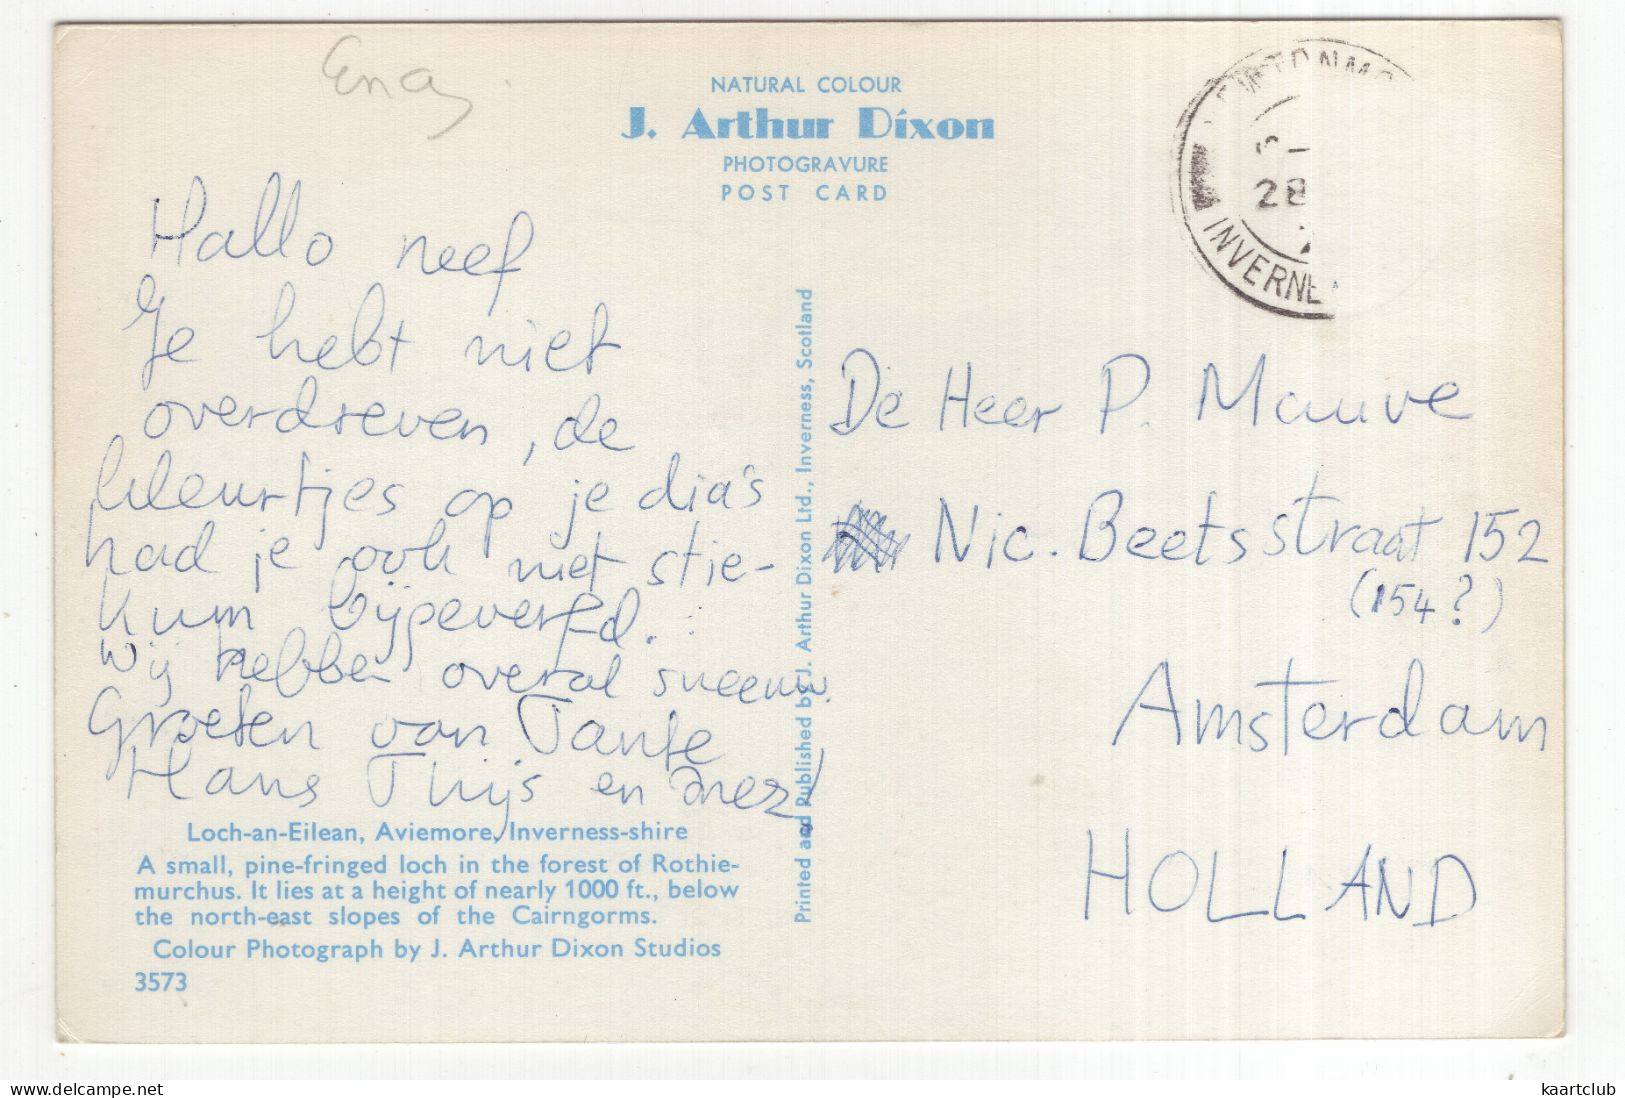 Eng
NATURAL COLOUR
J. Arthur Dixon
PHOTOGRAVURE
POST CARD
28
INVERNE
Hallo neef
Je hebt niet
overdreven, de
kleurtjes op je dia's
had je ook niet stie-
kum bijgeverfd.
Wij hebben overal sneeuw.
Groeten van Tante
Hans Thijs en Inez
Loch-an-Eilean, Aviemore, Inverness-shire
A small, pine-fringed loch in the forest of Rothie-
murchus. It lies at a height of nearly 1000 ft., below
the north-east slopes of the Cairngorms.
Colour Photograph by J. Arthur Dixon Studios
3573
Printed and Published by J. Arthur Dixon Ltd., Inverness, Scotland
De Heer P. Mauve
Nic. Beetsstraat 152
(154?)
Amsterdam
HOLLAND
kaartclub